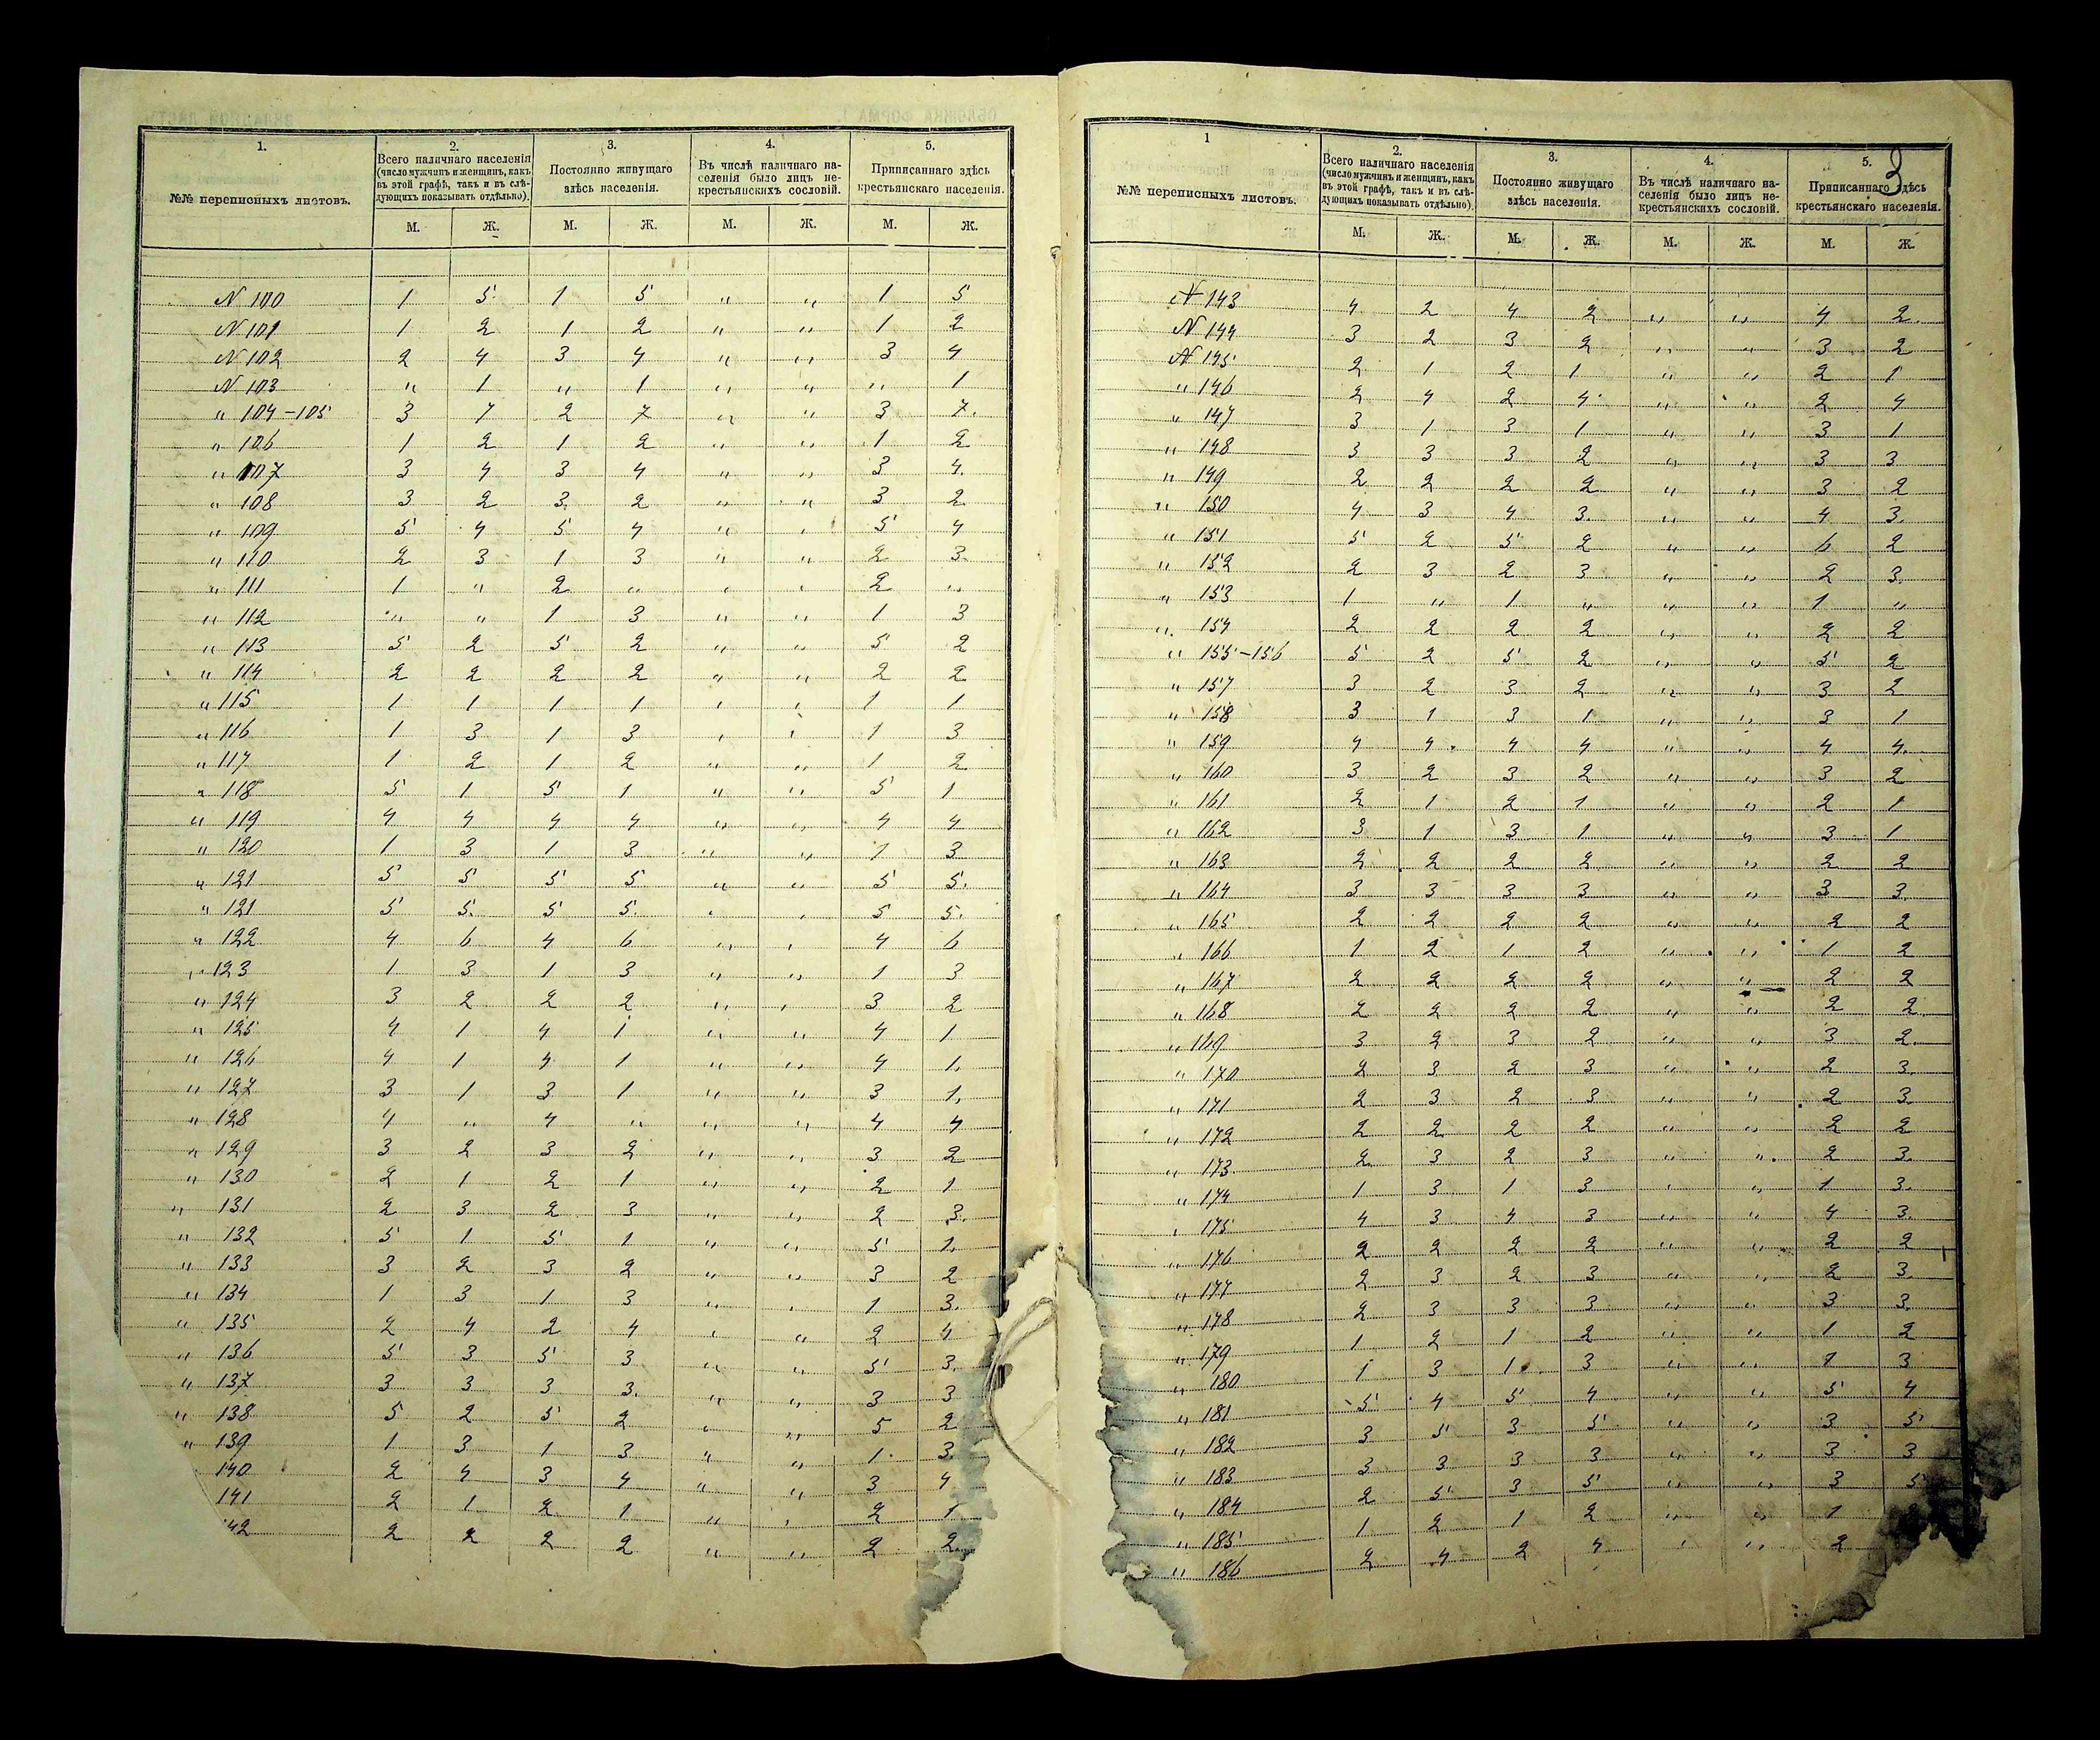 1. 2. 3. 4. 5.
№№ переписныхъ листовъ. Всего наличнаго населенія (число мужчинъ и женщинъ, какъ въ этой графѣ, такъ и въ слѣдующихъ показывать отдѣльно). Постоянно живущаго здѣсь населенія. Въ числѣ наличнаго населенія было лицъ некрестьянскихъ сословій. Приписаннаго здѣсь крестьянскаго населенія.
М. Ж. М. Ж. М. Ж. М. Ж.
N 100 1 5 1 5 " " 1 5
N 101 1 2 1 2 " " 1 2
N 102 2 4 3 4 " " 3 4
N 103 " 1 " 1 " " " 1
" 104-105 3 7 2 7 " " 3 7.
" 106 1 2 1 2 " " 1 2
" 107 3 4 3 4 " " 3 4.
" 108 3 2 3. 2 " " 3 2
" 109 5 4 5 4 " " 5 4
" 110 2 3 1 3 " " 2 3.
" 111 1 " 2 " " " 2 "
" 112 " " 1 3 " " 1 3
" 113 5 2 5 2 " " 5 2
" 114 2 2 2 2 " " 2 2
" 115 1 1 1 1 " " 1 1
" 116 1 3 1 3 " " 1 3
" 117 1 2 1 2 " " 1 2
" 118 5 1 5 1 " " 5 1
" 119 4 4 4 4 " " 4 4
" 120 1 3 1 3 " " 1 3
" 121 5 5 5 5 " " 5 5.
" 121 5 5. 5 5. " " 5 5.
" 122 4 6 4 6 " " 4 6
" 123 1 3 1 3 " " 1 3
" 124 3 2 2 2 " " 3 2
" 125 4 1 4 1 " " 4 1
" 126 4 1 4 1 " " 4 1.
" 127 3 1 3 1 " " 3 1.
" 128 4 " 4 " " " 4 4
" 129 3 2 3 2 " " 3 2
" 130 2 1 2 1 " " 2 1
" 131 2 3 2 3 " " 2 3.
" 132 5 1 5 1 " " 5 1.
" 133 3 2 3 2 " " 3 2
" 134 1 3 1 3 " " 1 3.
" 135 2 4 2 4 " " 2 4
" 136 5 3 5 3 " " 5 3.
" 137 3 3 3 3. " " 3 3
" 138 5 2 5 2 " " 5 2
" 139 1 3 1 3 " " 1 3.
140 2 4 3 4 " " 3 4
141 2 1 2 1 " " 2 1
42 2 2 2 2 " " 2 2.
3
1 2. 3. 4. 5.
№№ переписныхъ листовъ. Всего наличнаго населенія (число мужчинъ и женщинъ, какъ въ этой графѣ, такъ и въ слѣдующихъ показывать отдѣльно). Постоянно живущаго здѣсь населенія. Въ числѣ наличнаго населенія было лицъ некрестьянскихъ сословій. Приписаннаго здѣсь крестьянскаго населенія.
М. Ж. М. Ж. М. Ж. М. Ж.
N 143 4 2 4 2 " " 4 2.
N 144 3 2 3 2 " " 3 2
N 145 2 1 2 1 " " 2 1
" 146 2 4 2 4 " " 2 4
" 147 3 1 3 1 " " 3 1
" 148 3 3 3 2 " " 3 3
" 149 2 2 2 2 " " 3 2
" 150 4 3 4 3. " " 4 3.
" 151 5 2 5 2 " " 6 2
" 152 2 3 2 3 " " 2 3.
" 153 1 " 1 " " " 1 "
" 154 2 2 2 2 " " 2 2
" 155-156 5 2 5 2 " " 5 2
" 157 3 2 3 2 " " 3 2
" 158 3 1 3 1 " " 3 1
" 159 4 4. 4 4 " " 4 4.
" 160 3 2 3 2 " " 3 2
" 161 2 1 2 1 " " 2 1
" 162 3 1 3 1 " " 3 1
" 163 2 2 2 2 " " 2 2
" 164 3 3 3 3 " " 3 3.
" 165 2 2 2 2 " " 2 2
" 166 1 2 1 2 " " 1 2
" 167 2 2 2 2 " " 2 2
" 168 2 2 2 2 " " 2 2.
" 169 3 2 3 2 " " 3 2.
" 170 2 3 2 3 " " 2 3.
" 171 2 3 2 3 " " 2 3.
" 172 2 2 2 2 " " 2 2
" 173 2 3 2 3 " " 2 3.
" 174 1 3 1 3 " " 1 3.
" 175 4 3 4 3 " " 4 3.
" 176 2 2 2 2 " " 2 2
" 177 2 3 2 3 " " 2 3.
" 178 2 3 3 3 " " 3 3.
" 179 1 2 1 2 " " 1 2
" 180 1 3 1. 3 " " 1 3
" 181 5 4 5 4 " " 5 4
" 182 3 5 3 5 " " 3 5
" 183 3 3 3 3 " " 3 3
" 184 2 5 3 5 " " 3 5
" 185 1 2 1 2 " " 1
" 186 2 4 2 4 " " 2